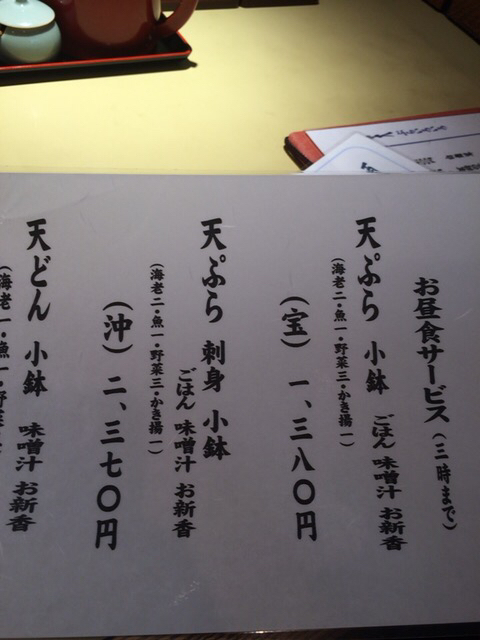 お昼食サービス(三時まで)
天ぷら 小鉢 ごはん 味噌汁 お新香
(海老二・魚一・野菜三・かき揚一)
(宝) 一、三八〇円
天ぷら 刺身 小鉢
ごはん 味噌汁 お新香
(海老二・魚一・野菜三・かき揚一)
(沖) 二、三七〇円
天どん 小鉢 味噌汁 お新香
(海老一・魚一・野菜